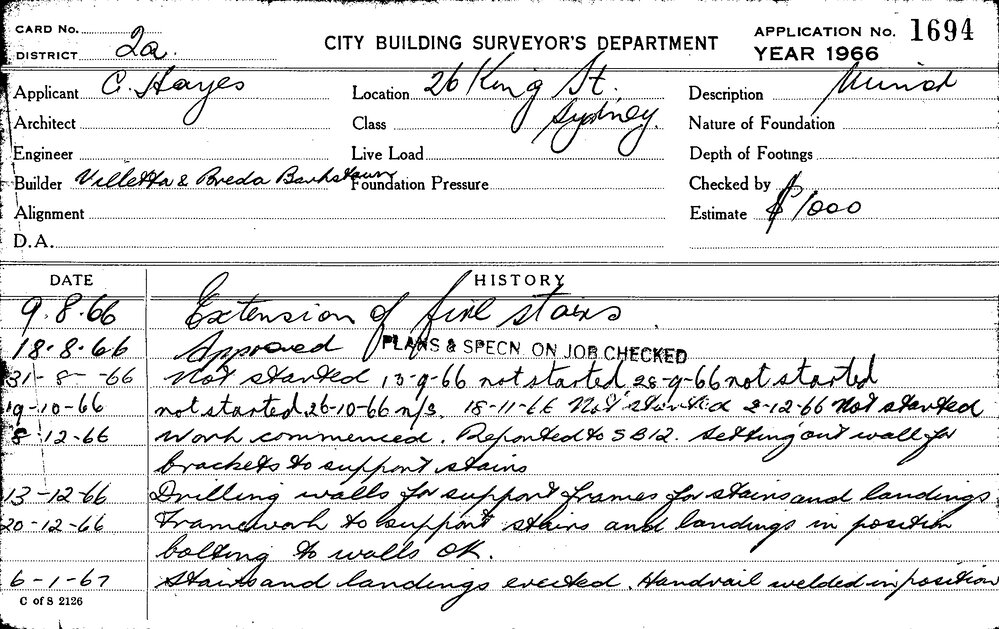 CARD No.
DISTRICT 2a.
CITY BUILDING SURVEYOR'S DEPARTMENT
APPLICATION No. 1694
YEAR 1966
Applicant C. Hayes
Location 26 King St. Sydney.
Description
Architect
Class
Nature of Foundation
Engineer
Live Load
Depth of Footings
Builder Villetta & Breda Bankstown
Foundation Pressure
Checked by
Alignment
Estimate $1000
D.A.
DATE HISTORY
9.8.66 Extension of fire stairs
18.8.66 Approved PLANS & SPECN. ON JOB CHECKED
31-8-66 Not started 13-9-66 not started 28-9-66 not started
19-10-66 not started 26-10-66 n/s. 18-11-66 Not started 2-12-66 Not started
8-12-66 Work commenced. Reported to SB12. Setting out wall for
brackets to support stairs
13-12-66 Drilling walls for support frames for stairs and landings
20-12-66 Framework to support stairs and landings in position
bolting to walls OK.
6-1-67 Stairs and landings erected. Handrail welded in position
C of S 2126